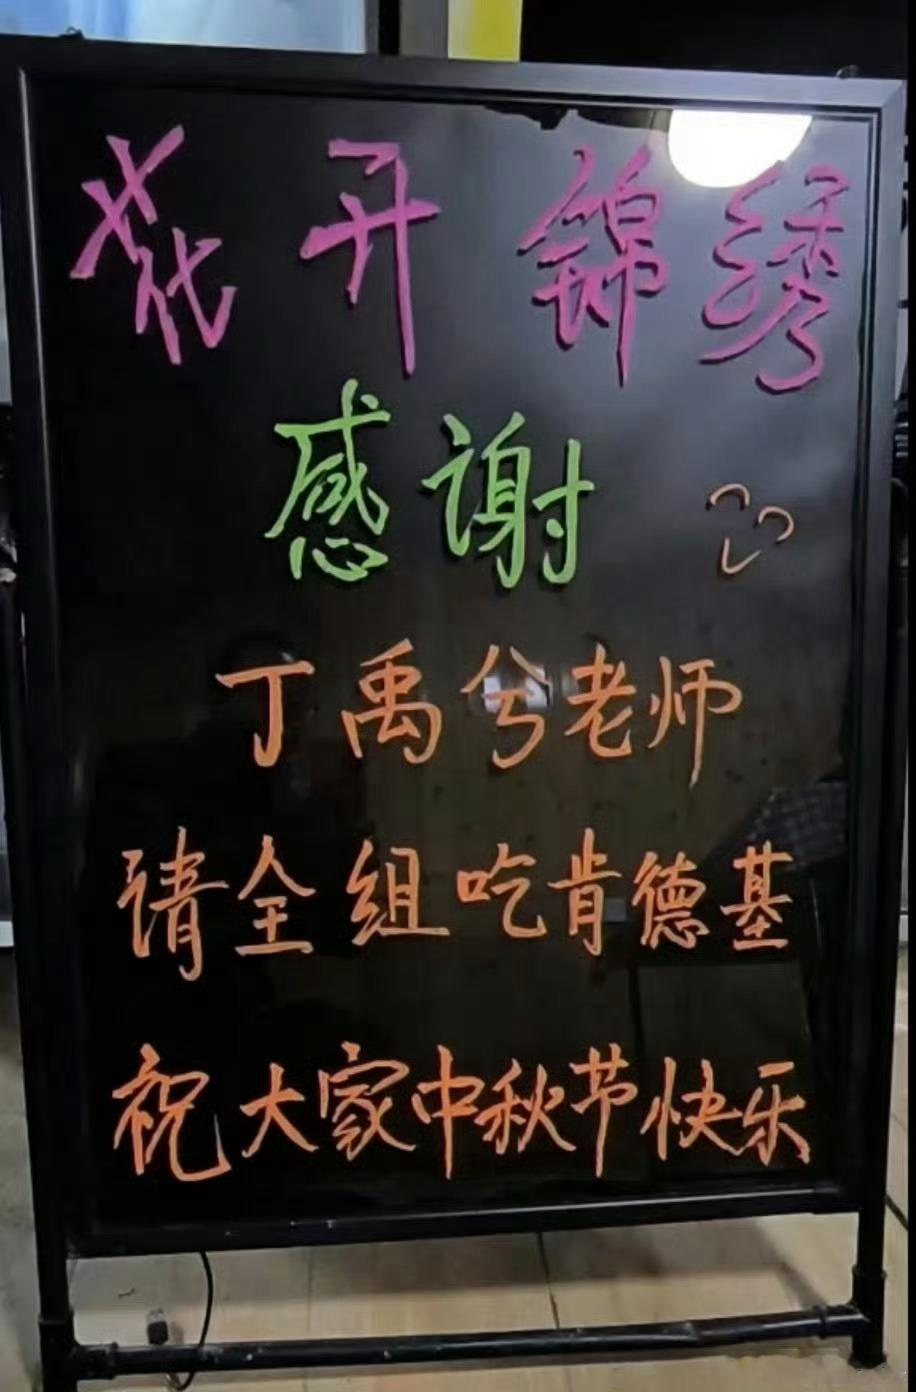 花开锦绣
感谢
丁禹兮老师
请全组吃肯德基
祝大家中秋节快乐